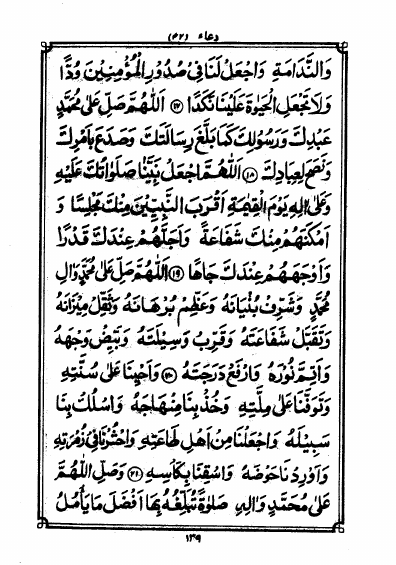 دعاء (٤٢)
وَالنَّدَامَةِ وَاجْعَلْ لَنَا فِي صُدُورِ الْمُؤْمِنِينَ وُدًّا
وَلَا تَجْعَلِ الْحَيٰوةَ عَلَيْنَا نَكَدًا ﴿١٧﴾ اَللّٰهُمَّ صَلِّ عَلٰى مُحَمَّدٍ
عَبْدِكَ وَرَسُوْلِكَ كَمَا بَلَّغَ رِسَالَتَكَ وَصَدَعَ بِاَمْرِكَ
وَنَصَحَ لِعِبَادِكَ ﴿١٨﴾ اَللّٰهُمَّ اجْعَلْ نَبِيَّنَا صَلَوَاتُكَ عَلَيْهِ
وَعَلٰى اٰلِهِ يَوْمَ الْقِيٰمَةِ اَقْرَبَ النَّبِيِّيْنَ مِنْكَ مَجْلِسًا وَ
اَمْكَنَهُمْ مِنْكَ شَفَاعَةً وَاَجَلَّهُمْ عِنْدَكَ قَدْرًا
وَاَوْجَهَهُمْ عِنْدَكَ جَاهًا ﴿١٩﴾ اَللّٰهُمَّ صَلِّ عَلٰى مُحَمَّدٍ وَّاٰلِ
مُحَمَّدٍ وَشَرِّفْ بُنْيَانَهُ وَعَظِّمْ بُرْهَانَهُ وَثَقِّلْ مِيْزَانَهُ
وَتَقَبَّلْ شَفَاعَتَهُ وَقَرِّبْ وَسِيْلَتَهُ وَبَيِّضْ وَجْهَهُ
وَاَتِمَّ نُوْرَهُ وَارْفَعْ دَرَجَتَهُ ﴿٢٠﴾ وَاَحْيِنَا عَلٰى سُنَّتِهِ
وَتَوَفَّنَا عَلٰى مِلَّتِهِ وَخُذْ بِنَا مِنْهَاجَهُ وَاسْلُكْ بِنَا
سَبِيْلَهُ وَاجْعَلْنَا مِنْ اَهْلِ طَاعَتِهِ وَاحْشُرْنَا فِيْ زُمْرَتِهِ
وَاَوْرِدْنَا حَوْضَهُ وَاسْقِنَا بِكَاْسِهِ ﴿٢١﴾ وَصَلِّ اللّٰهُمَّ
عَلٰى مُحَمَّدٍ وَاٰلِهِ صَلٰوةً تُبَلِّغُهُ بِهَا اَفْضَلَ مَا يَاْمُلُ
١٣٩